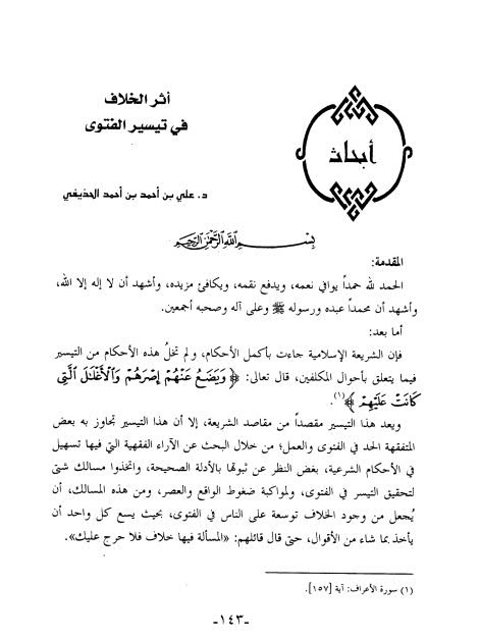 أثر الخلاف
في تيسير الفتوى
أبحاث
د. علي بن أحمد بن أحمد الحذيفي
بسم الله الرحمن الرحيم
المقدمة:
الحمد لله حمداً يوافي نعمه، ويدفع نقمه، ويكافئ مزيده، وأشهد أن لا إله إلا الله،
وأشهد أن محمداً عبده ورسوله ﷺ وعلى آله وصحبه أجمعين.
أما بعد:
فإن الشريعة الإسلامية جاءت بأكمل الأحكام، ولم تخلُ هذه الأحكام من التيسير
فيما يتعلق بأحوال المكلفين، قال تعالى: ﴿ وَيَضَعُ عَنْهُمْ إِصْرَهُمْ وَالْأَغْلَالَ الَّتِي
كَانَتْ عَلَيْهِمْ ﴾(١).
ويعد هذا التيسير مقصداً من مقاصد الشريعة، إلا أن هذا التيسير تجاوز به بعض
المتفقهة الحد في الفتوى والعمل؛ من خلال البحث عن الآراء الفقهية التي فيها تسهيل
في الأحكام الشرعية، بغض النظر عن ثبوتها بالأدلة الصحيحة، واتخذوا مسالك شتى
لتحقيق التيسر في الفتوى، ولمواكبة ضغوط الواقع والعصر، ومن هذه المسالك، أن
يُجعل من وجود الخلاف توسعة على الناس في الفتوى، بحيث يسع كل واحد أن
يأخذ بما شاء من الأقوال، حتى قال قائلهم: «المسألة فيها خلاف فلا حرج عليك».
(١) سورة الأعراف: آية [١٥٧].
-١٤٣-